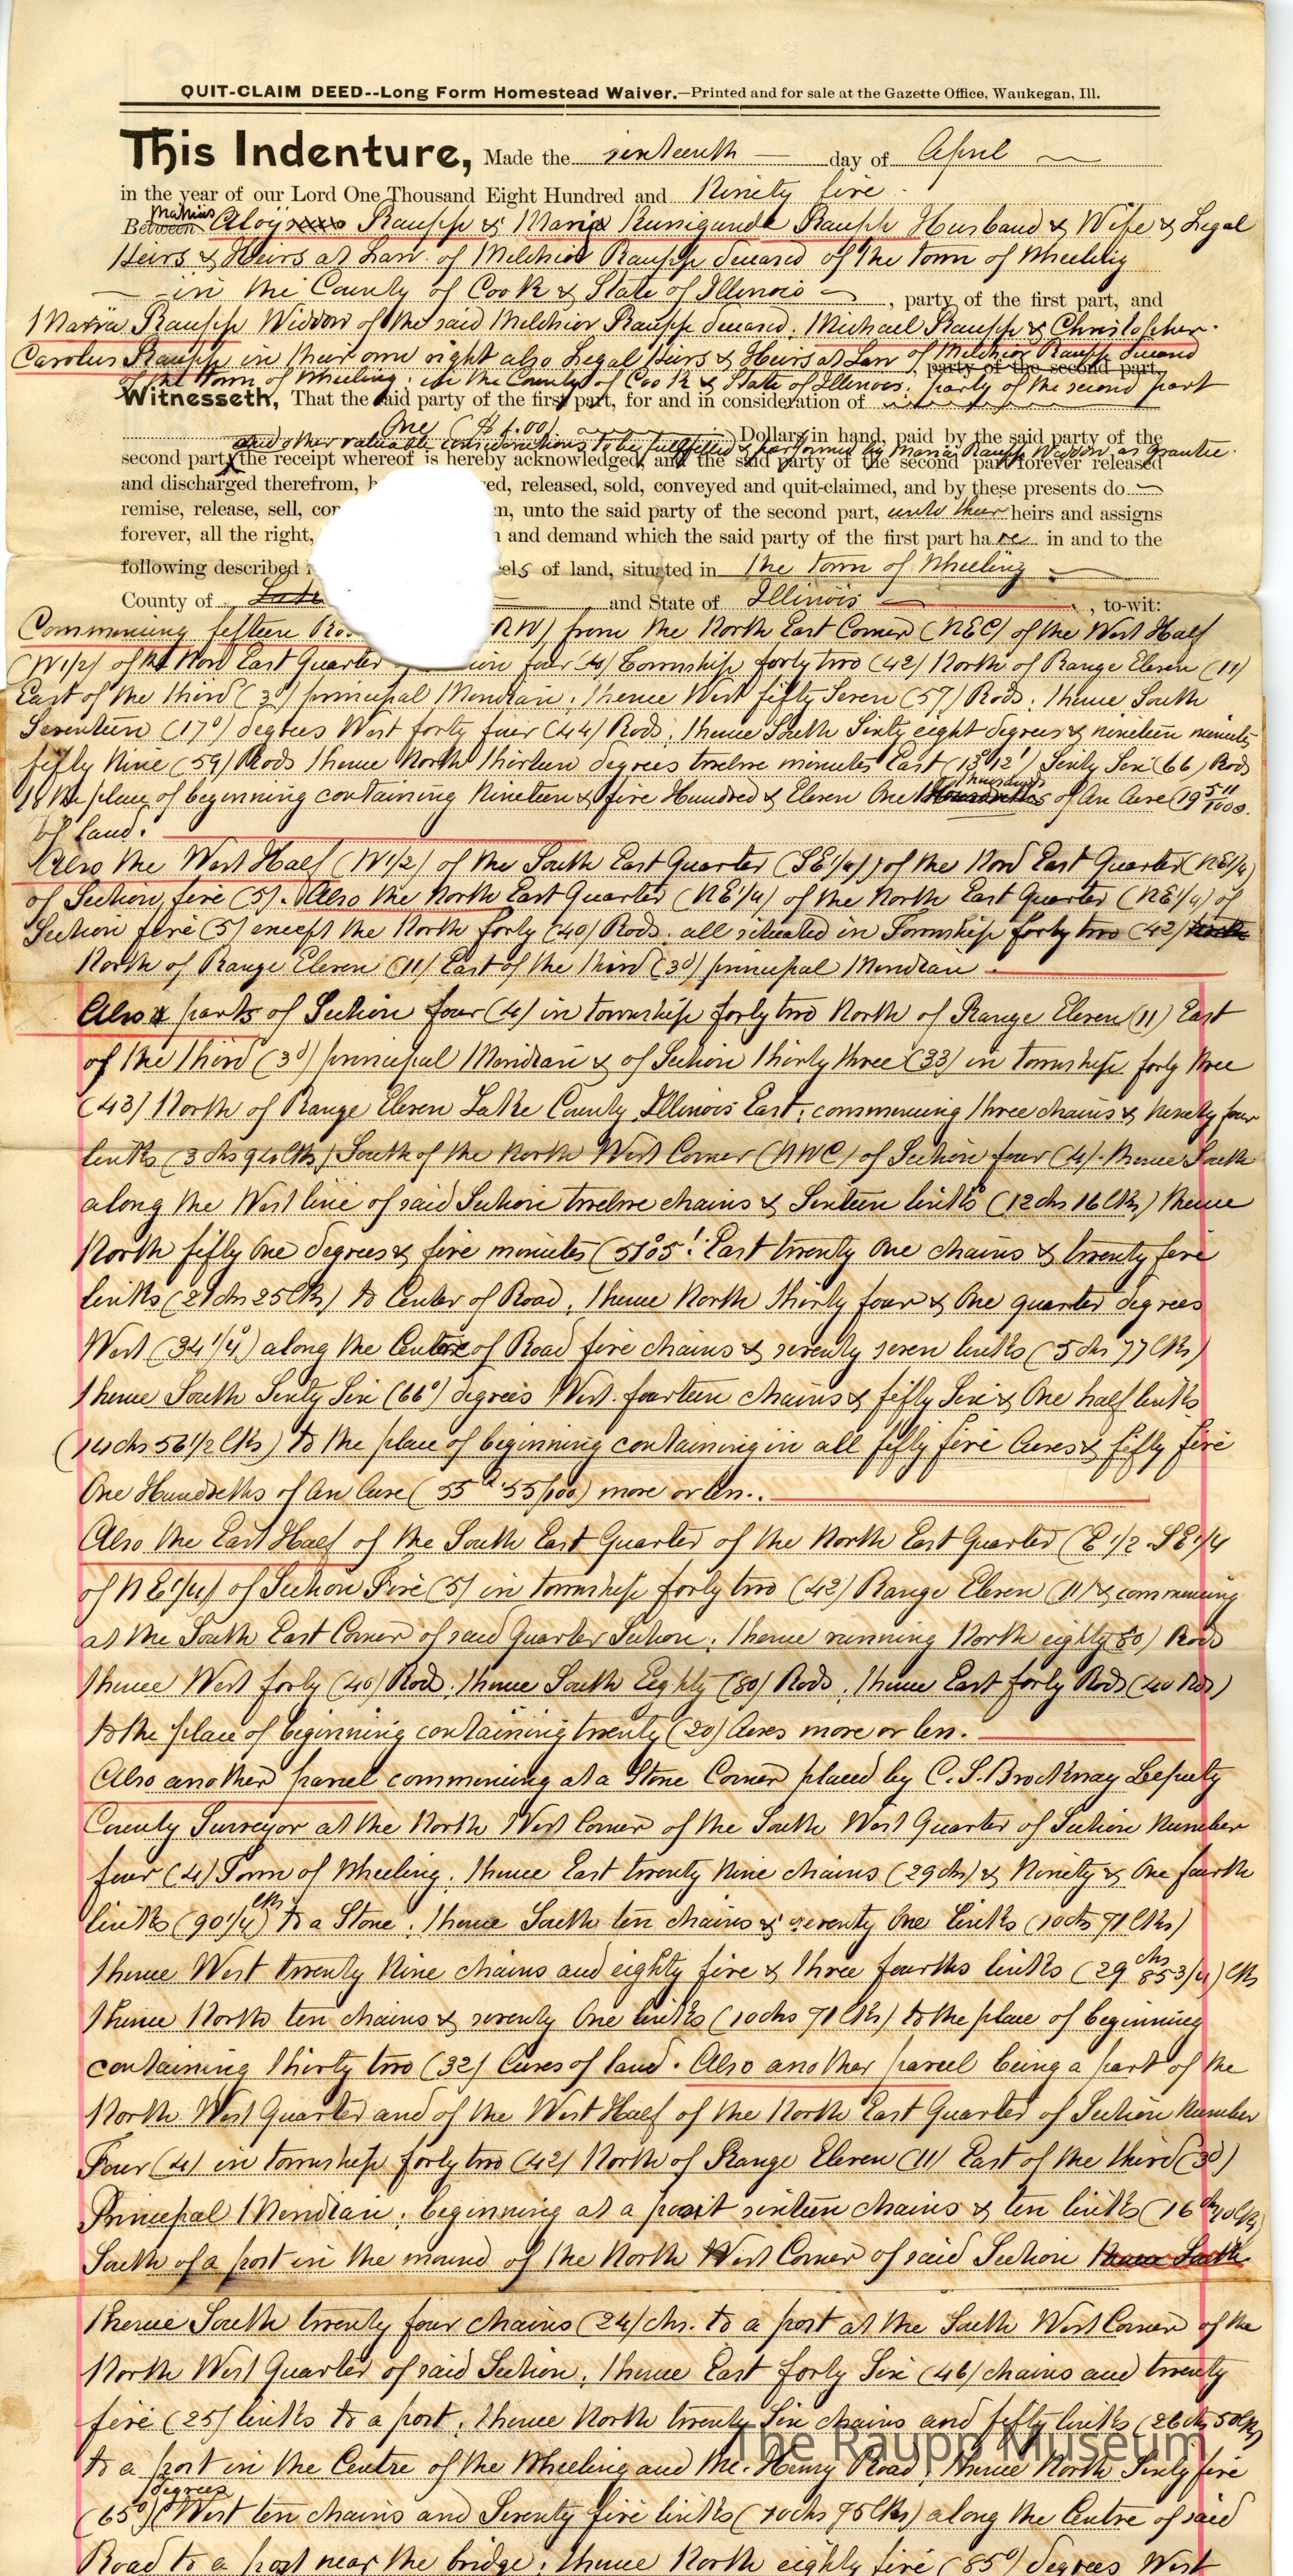 QUIT-CLAIM DEED--Long Form Homestead Waiver.—Printed and for sale at the Gazette Office, Waukegan, Ill.
This Indenture, Made the sixteenth day of April
in the year of our Lord One Thousand Eight Hundred and Ninety five
Between Aloij Raupp & Maria Kunigunde Raupp Husband & Wife & Legal
Heirs & Heirs at Law of Melchior Raupp deceased of the Town of Wheeling
in the County of Cook & State of Illinois, party of the first part, and
Maria Raupp Widdow of the said Melchior Raupp deceased. Michael Raupp & Christopher
Carolus Raupp in their own right also Legal Heirs & Heirs at Law of Melchior Raupp deceased
, party of the second part,
of the Town of Wheeling: in the County of Cook & State of Illinois: party of the second part
Witnesseth, That the said party of the first part, for and in consideration of
One ($1.00) Dollars in hand, paid by the said party of the
and other valuable considerations to be fullfilled & performed by Maria Raupp Widdow as Grantee.
second part, the receipt whereof is hereby acknowledged, and the said party of the second part forever released
and discharged therefrom, ed, released, sold, conveyed and quit-claimed, and by these presents do
remise, release, sell, con n, unto the said party of the second part, unto their heirs and assigns
forever, all the right, and demand which the said party of the first part have in and to the
following described els of land, situated in the Town of Wheeling
County of and State of Illinois, to-wit:
Commencing fifteen Rods RW) from the North East Corner (NEC) of the West Half
(W1/2) of the Nord East Quarter four (4) Township forty two (42) North of Range Eleven (11)
East of the third (3d) principal Meridian; thence West fifty Seven (57) Rods; thence South
Seventeen (17°) degrees West forty four (44) Rods; thence South Sixty eight degrees & nineteen minutes
fifty Nine (59) Rods thence North thirteen degrees twelve minutes East (13°12') Sixty Six (66) Rods
to the place of beginning containing Nineteen & five Hundred & Eleven One thousands of An Acre (19 511/1000.
of land.
Also the West Half (W1/2) of the South East Quarter (SE1/4) of the Nord East Quarter (NE1/4)
of Section five (5). Also the North East Quarter (NE1/4) of the North East Quarter (NE1/4) of
Section five (5) except the North forty (40) Rods. all situated in Township forty two (42)
North of Range Eleven (11) East of the third (3d) principal Meridian.
Also parts of Section four (4) in township forty two North of Range Eleven (11) East
of the third (3d) principal Meridian & of Section thirty three (33) in township forty three
(43) North of Range Eleven Lake County Illinois East; commencing three chains & Ninety four
links (3 chs 94 lks) South of the North West Corner (NWC) of Section four (4). thence South
along the West line of said Section twelve chains & Sixteen links (12 chs 16 lks) thence
North fifty One degrees & five minutes (51°5' East twenty One chains & twenty five
links (21 chs 25 lks) to Center of Road; thence North thirty four & One quarter degrees
West (34 1/4°) along the Centre of Road five chains & seventy seven links (5 chs 77 lks)
thence South Sixty Six (66°) degrees West fourteen chains & fifty Six & One half links
(14 chs 56 1/2 lks) to the place of beginning containing in all fifty five Acres & fifty five
One Hundredths of An Acre (55 a 55/100) more or less.
Also the East Half of the South East Quarter of the North East Quarter (E 1/2 SE 1/4
of NE 1/4) of Section Five (5) in township forty two (42) Range Eleven (11) & commencing
at the South East Corner of said Quarter Section; thence running North eighty (80) Rods
thence West forty (40) Rods; thence South Eighty (80) Rods; thence East forty Rods (40 Rds)
to the place of beginning containing twenty (20) Acres more or less.
Also another parcel commencing at a Stone Corner placed by C. S. Brockway Deputy
County Surveyor at the North West Corner of the South West Quarter of Section Number
four (4) Town of Wheeling; thence East twenty Nine chains (29 chs) & Ninety & One fourth
links (90 1/4 lks) to a Stone; thence South ten chains & seventy One links (10 chs 71 lks)
thence West twenty Nine chains and eighty five & three fourths links (29 chs 85 3/4) lks
thence North ten chains & seventy One links (10 chs 71 lks) to the place of beginning
containing thirty two (32) Acres of land. Also another parcel being a part of the
North West Quarter and of the West Half of the North East Quarter of Section Number
Four (4) in township forty two (42) North of Range Eleven (11) East of the third (3d)
Principal Meridian; beginning at a point sixteen chains & ten links (16 chs 10 lks)
South of a post in the mound of the North West Corner of said Section thence South
thence South twenty four chains (24) chs. to a post at the South West Corner of the
North West Quarter of said Section; thence East forty Six (46) chains and twenty
five (25) links to a post; thence North twenty Six chains and fifty links (26 chs 50 lks)
to a post in the Centre of the Wheeling and Mc. Henry Road; thence North Sixty five
(65°) degrees West ten chains and Seventy five links (10 chs 75 lks) along the Centre of said
Road to a post near the bridge; thence North eighty five (85°) degrees West
The Raupp Museum